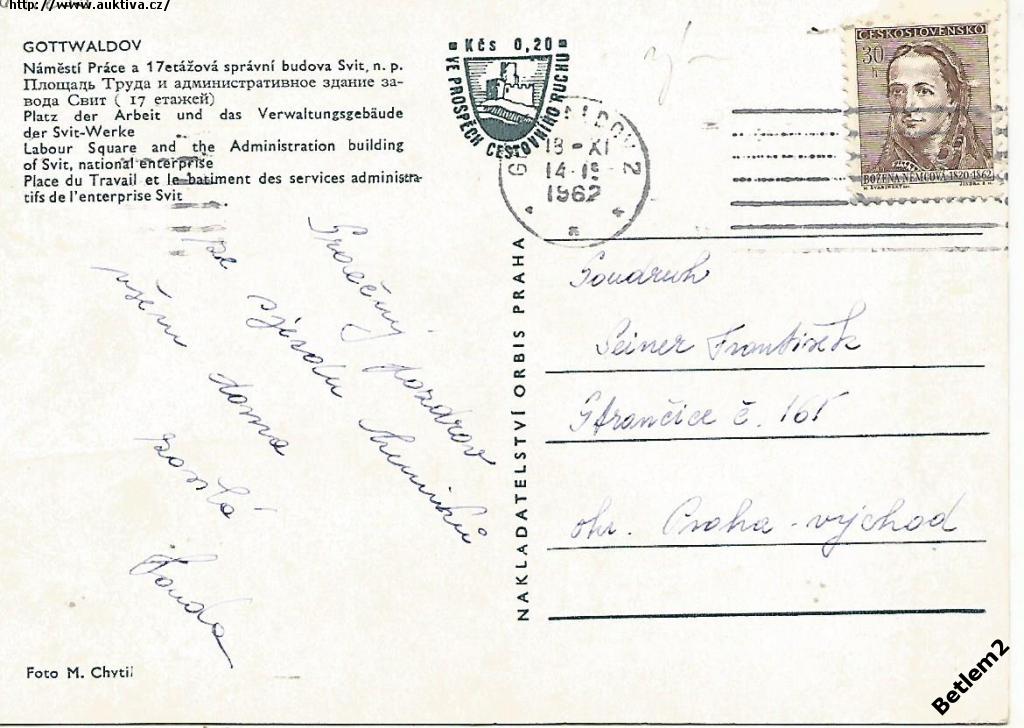 http://www.auktiva.cz/
GOTTWALDOV
Náměstí Práce a 17etážová správní budova Svit, n. p.
Площадь Труда и административное здание за-
вода Свит ( 17 етажей)
Platz der Arbeit und das Verwaltungsgebäude
der Svit-Werke
Labour Square and the Administration building
of Svit, national enterprise
Place du Travail et le batiment des services administra-
tifs de l'enterprise Svit
Kčs 0,20
VE PROSPĚCH CESTOVNÍHO RUCHU
18-XI
14-15
1962
ČESKOSLOVENSKO
30
h
BOŽENA NĚMCOVÁ 1820-1862
Srdečný pozdrav
ze sjezdu chemiků
všem doma
zasílá
NAKLADATELSTVÍ ORBIS PRAHA
Soudruh
Seiner František
Strančice č. 165
okr. Praha-východ
Foto M. Chytil
Betlem2